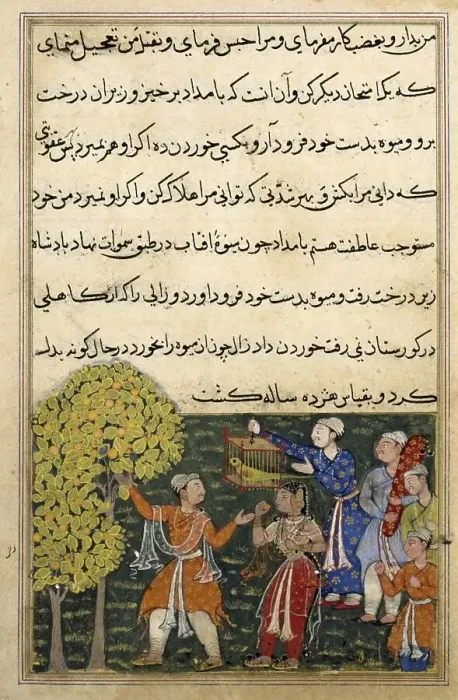 من بدار و بغضب کار مفرمای و مرا حبس فرمای و بقتل من تعجیل منمای
که یک امتحان دیگر کن و آن انست که بامداد برخیز و زیر ان درخت
برو و میوه بدست خود فرود آر و بکسی خوردن ده اکر او هم بمیرد عقوبتی
که دانی مرا بکش و بهر شدتی که توانی مرا هلاک کن و اکر او نمیرد من خود
مستوجب عاطفت هستم بامداد چون میوهٔ افتاب در طبق سموات نهاد پادشاه
زیر درخت رفت و میوه بدست خود فرود اورد و زالی را که از کاهلی
در کورستان نمی رفت خوردن داد زال چون ان میوه را بخورد در حال کونه بدل
کرد و بقیاس هژده ساله کشت